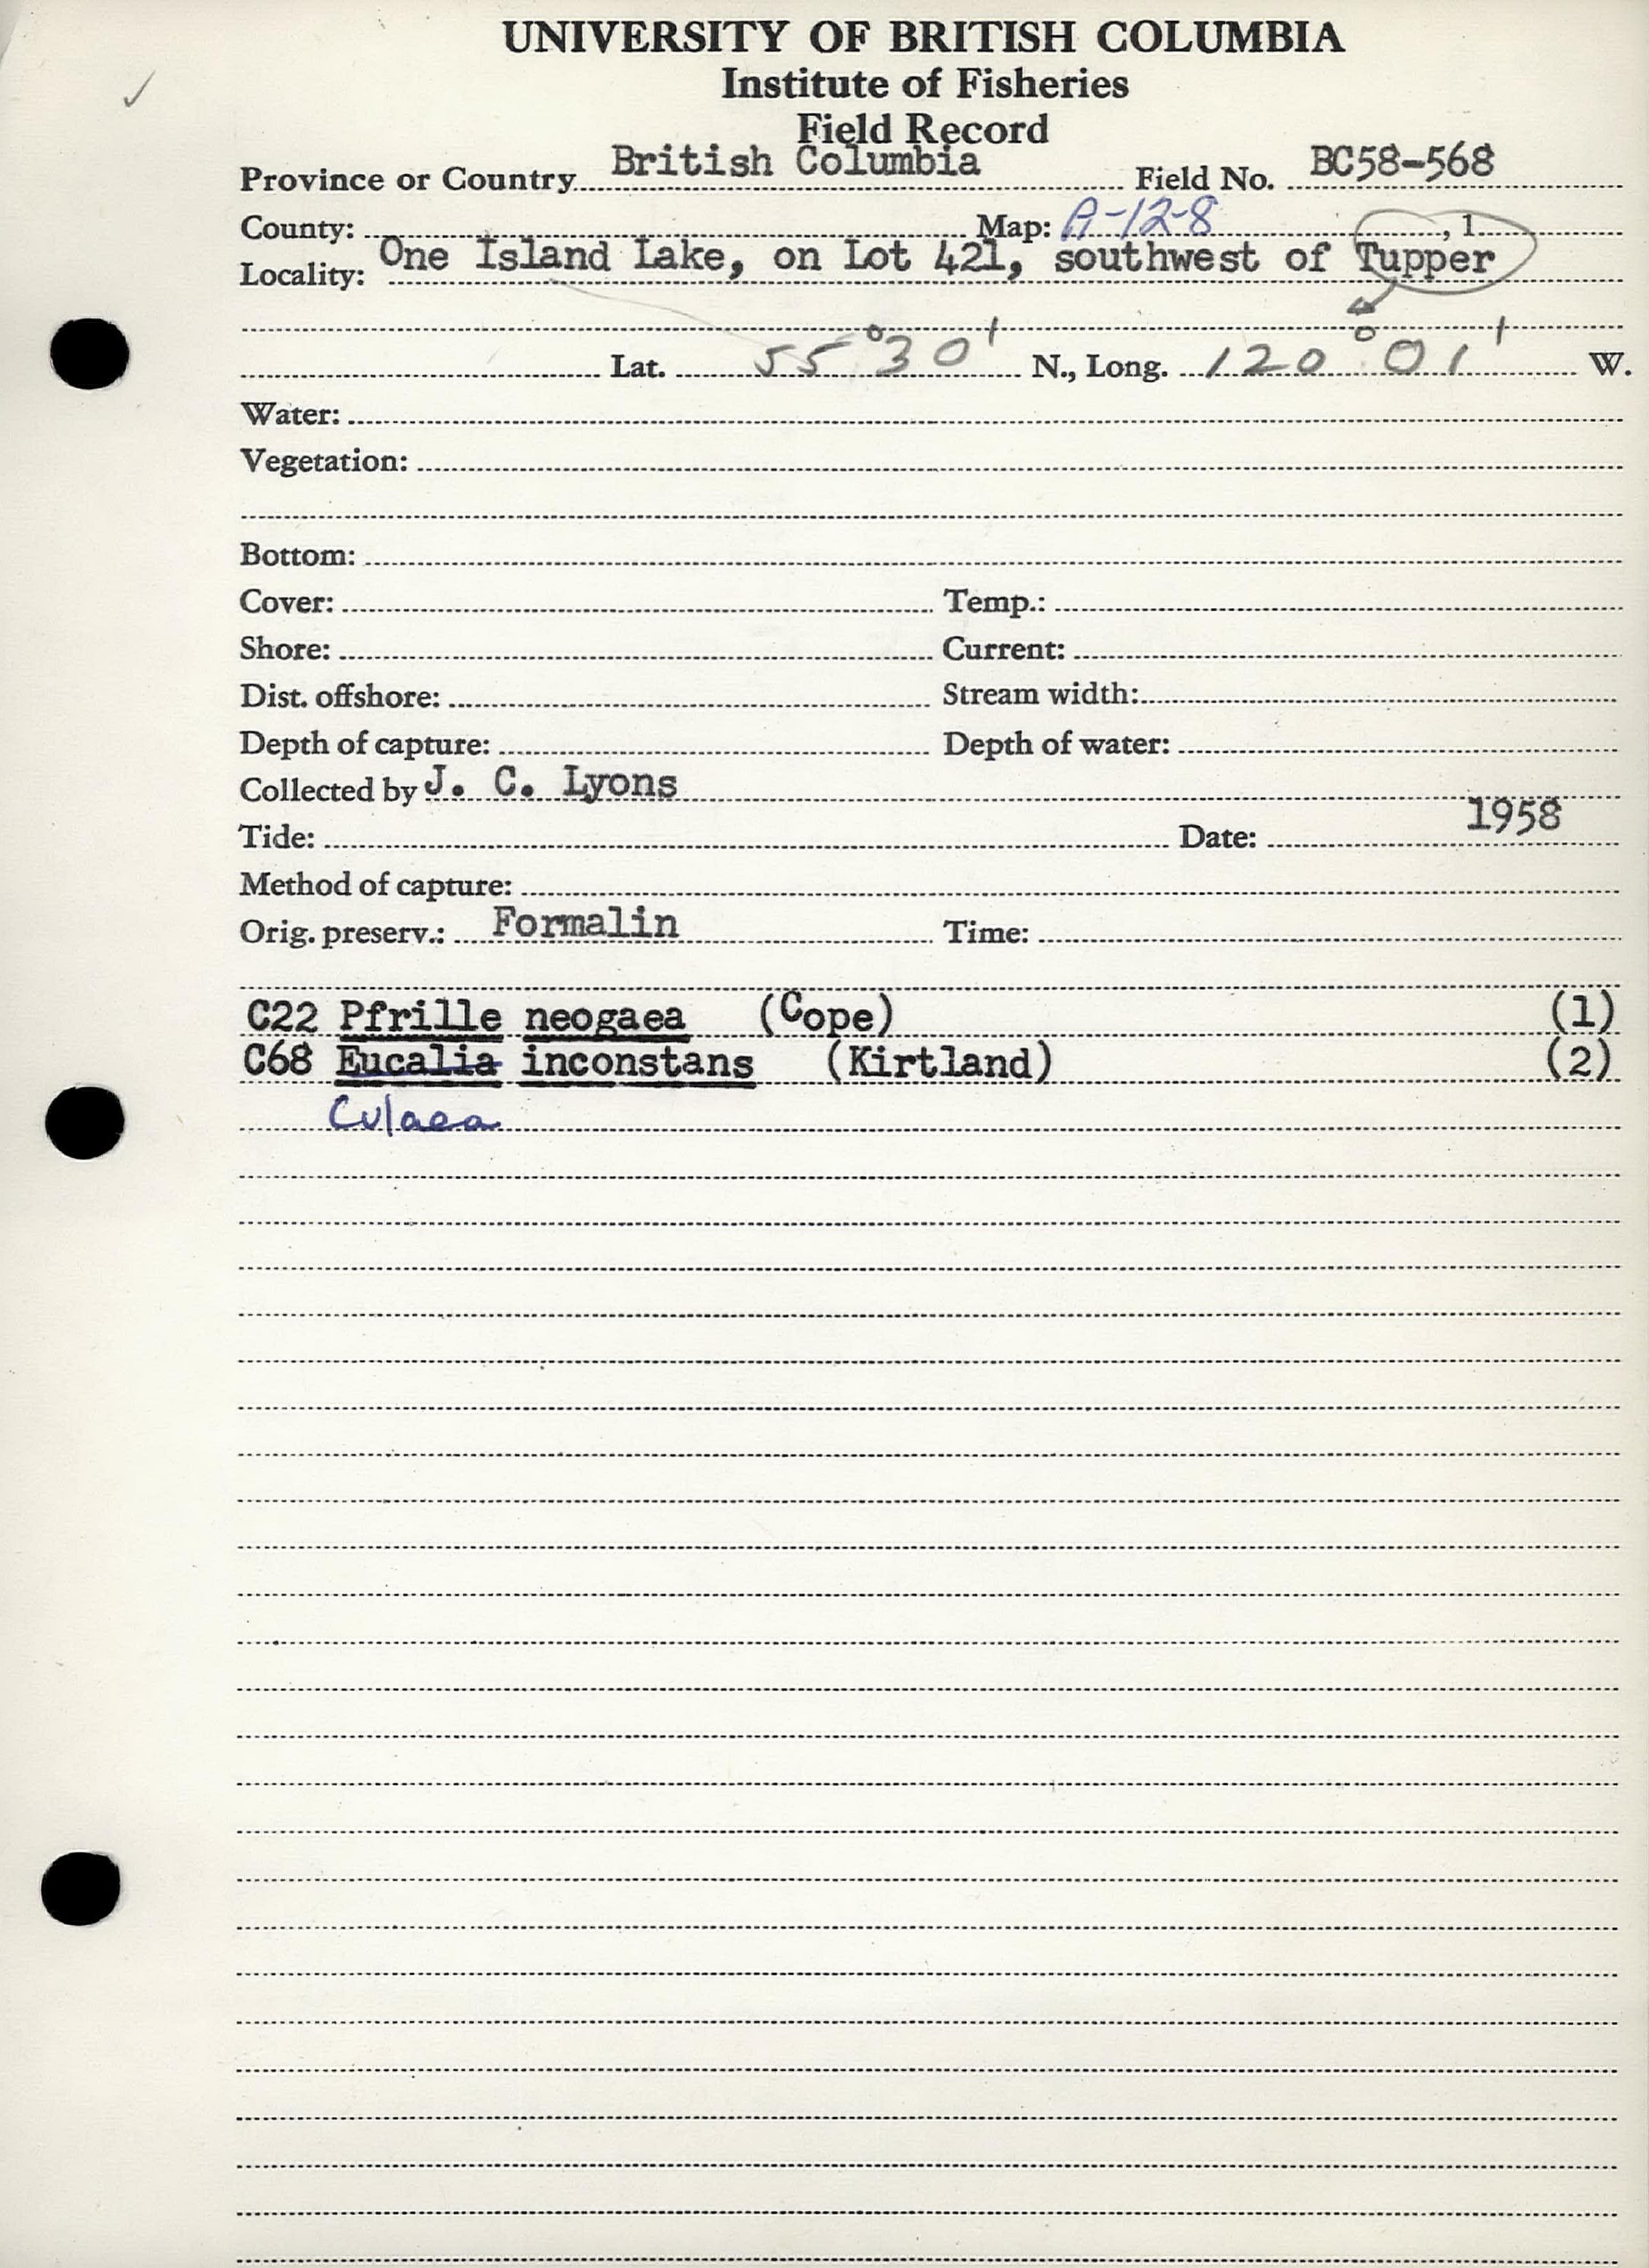 UNIVERSITY OF BRITISH COLUMBIA
Institute of Fisheries
Field Record
Province or Country British Columbia Field No. BC58-568
County: Map: A-12-8 , 1
Locality: One Island Lake, on Lot 421, southwest of Tupper
Lat. 55°30' N., Long. 120°01' W.
Water:
Vegetation:
Bottom:
Cover: Temp.:
Shore: Current:
Dist. offshore: Stream width:
Depth of capture: Depth of water:
Collected by J. C. Lyons
Tide: Date: 1958
Method of capture:
Orig. preserv.: Formalin Time:
C22 Pfrille neogaea (Cope) (1)
C68 Eucalia inconstans (Kirtland) (2)
Culaea